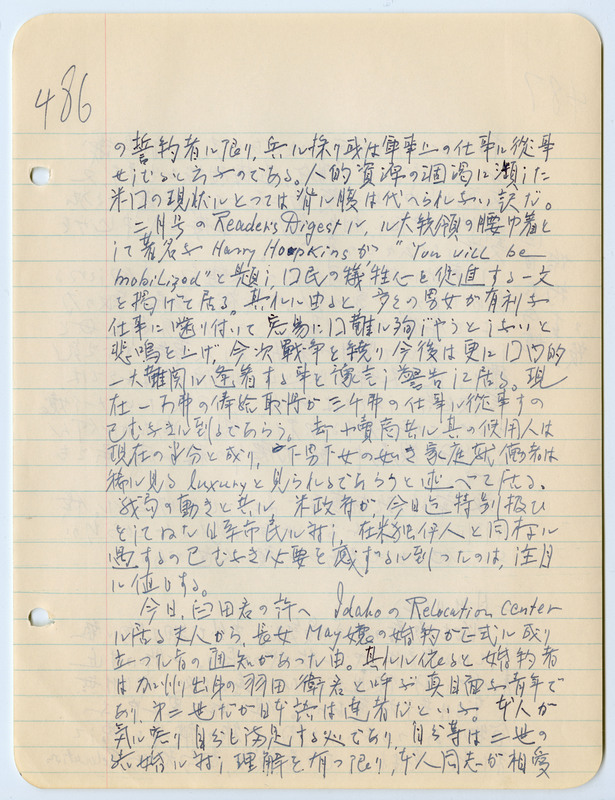 486
の誓約者に限り、兵に採り或は軍事上の仕事に従事
せしむると云ふのである。人的資源の涸渇に瀕した
米国の現状にとつては背に腹は代へられない訳だ。
二月号の Reader's Digest に、ル大統領の腰巾着と
して著名な Harry Hopkins が "You will be
mobilized" と題し、国民の犠牲心を促進する一文
を掲げて居る。其れに由ると、多くの男女が有利な
仕事に噛り付いて容易に国難に殉じやうとしないと
悲鳴を上げ、今次戦争を繞り今後は更に国内的
一大難関に逢着する事を予言し警告して居る。現
在一万弗の俸給取りが三千弗の仕事に従事するの
已むなきに到るであらう。卸小売商共に其の使用人は
現在の半分と成り、下男下女の如き家庭就働者は
稀に見る luxury と見られるであらうと述べて居る。
戦局の動きと共に、米政府が、今日迄特別扱ひ
をしてゐた日系市民に対し、在米独伊人と同様に
遇するの已むなき必要を感ずるに到つたのは、注目
に値ひする。
今日、臼田君の許へ Idaho の Relocation Center
に居る夫人から、長女 May 嬢の婚約が正式に成り
立つた旨の通知があつた由。其れに依ると婚約者
は加州出身の羽田衛君と呼ぶ真目面な青年で
あり、第二世だが日本語は達者だといふ。本人が
気に入り自分も満足する必であり、自分等は二世の
結婚に対し、理解を有つ限り、本人同志が相愛